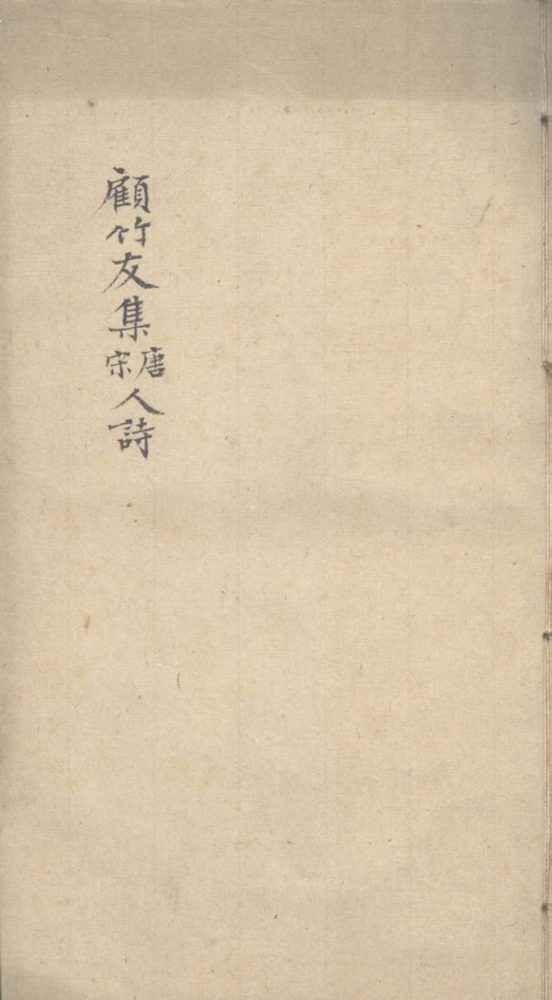 顧竹友集唐宋人詩